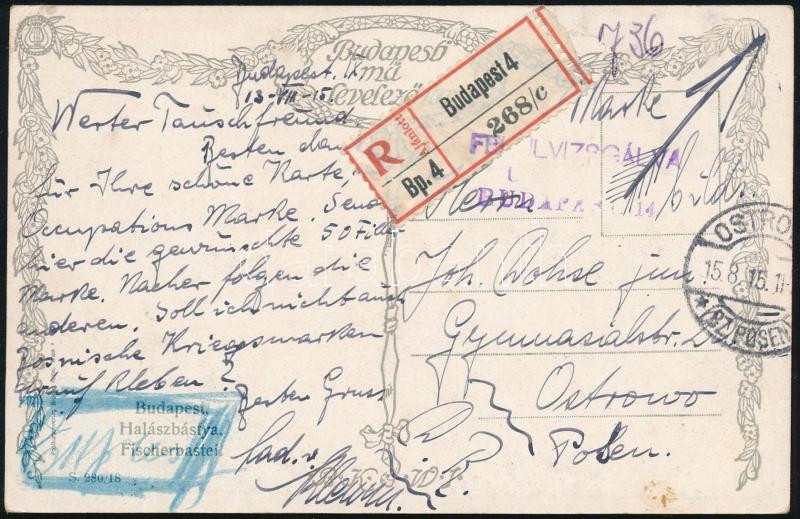 736
Budapesti
mű
levelező
Budapest, IX
13-VIII-15.
Werter Tauschfreund
Besten dan
für Ihre schöne Karte,
Occupations Marke. Send
hier die gewünschte 50 Filler
Marke. Nacher folgen die
anderen. Soll ich nicht auch
Bosnische Kriegsmarken
drauf kleben?
Besten Gruss
Budapest.
Halászbástya.
Fischerbastei.
S. 280/18
R
Ajánlott
Budapest 4
Bp. 4
268/c
Marke
bild.
FELÜLVIZSGÁLVA
BUDAPEST 14
Herrn
Joh. Dohse jun
Gymnasialstr. 2
Ostrowo
Posen.
OSTROWO
15.8.15.11-
* (BZ. POSEN)